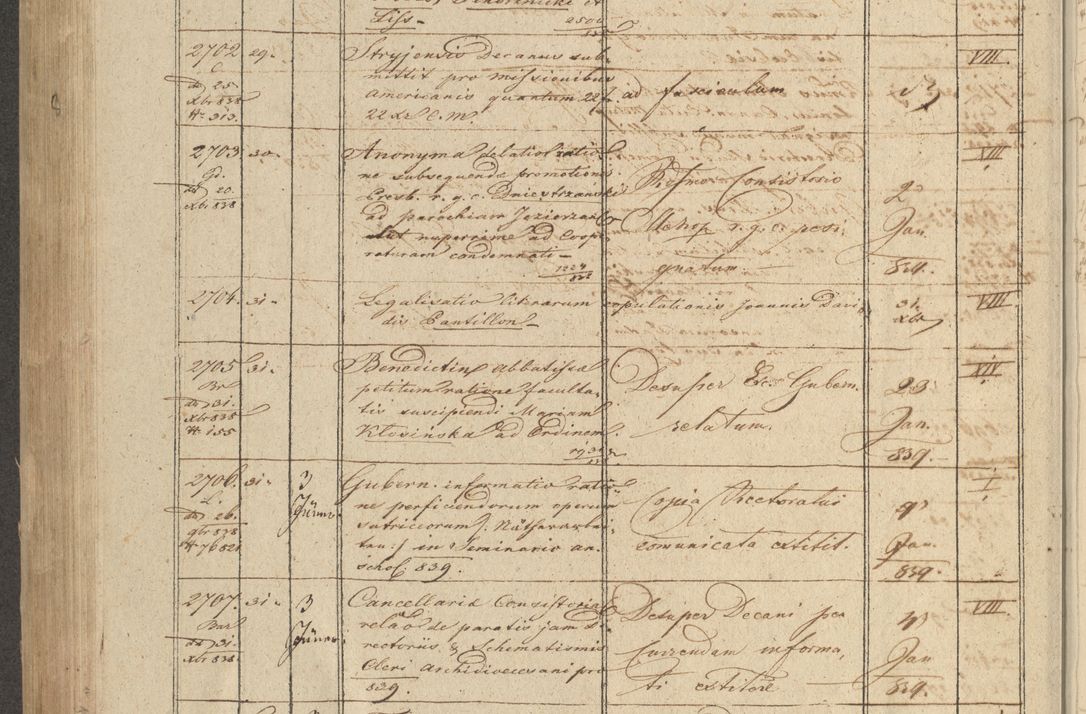 Liss
2500
2702 29.
C
dto 25.
Xbr 838
N 313.
Stryjensis Decanus sub-
mittit pro missionibus
Americanis quantum 22 f.
22 xr C.M.
ad fasciculum
VIII.
2703 30.
dto 20.
Xbr 838
Anonyma delatio ratio-
ne subsequendae promotionis
Presb. r. g. c. Dniestrzański
ad parochiam Jezierzan
nuperrime ad Coope-
raturam condemnati
1224
838
Rssmo Consistorio
Metrop. r. g. c. resi-
gnatum
2
Jan
839.
VIII.
2704. 31.
Legalisatio literarum copulationis Joannis Davi-
dis Cantillon
31.
Xbr
VIII.
2705 31.
dto 31.
Xbr 838
N 155
Benedictin. Abbatissa
petitum ratione faculta-
tis suscipiendi Mariam
Kłosińska ad Ordinem.
Desuper Exc. Gubern.
relatum.
23
Jan.
839.
XIV.
2706. 31.
L.
dto 26.
9br 838
N 76821
3
Gubern. informatio ratio-
ne perficiendorum operum
sutriciorum /: Nätherarbei-
ten :/ in Seminario an.
schol. 839.
Copia Rectoratui
comunicata extitit.
9
Jan.
839.
I.
2707. 31.
dto 31.
Xbr 838
3
Cancellaria Consistorial.
relāo de paratis jam
rectoriis & Schematismis
Cleri Archidioecesani pro
839.
Desuper Decani per
Currendam informa-
ti extitere
4
Jan
839.
VIII.